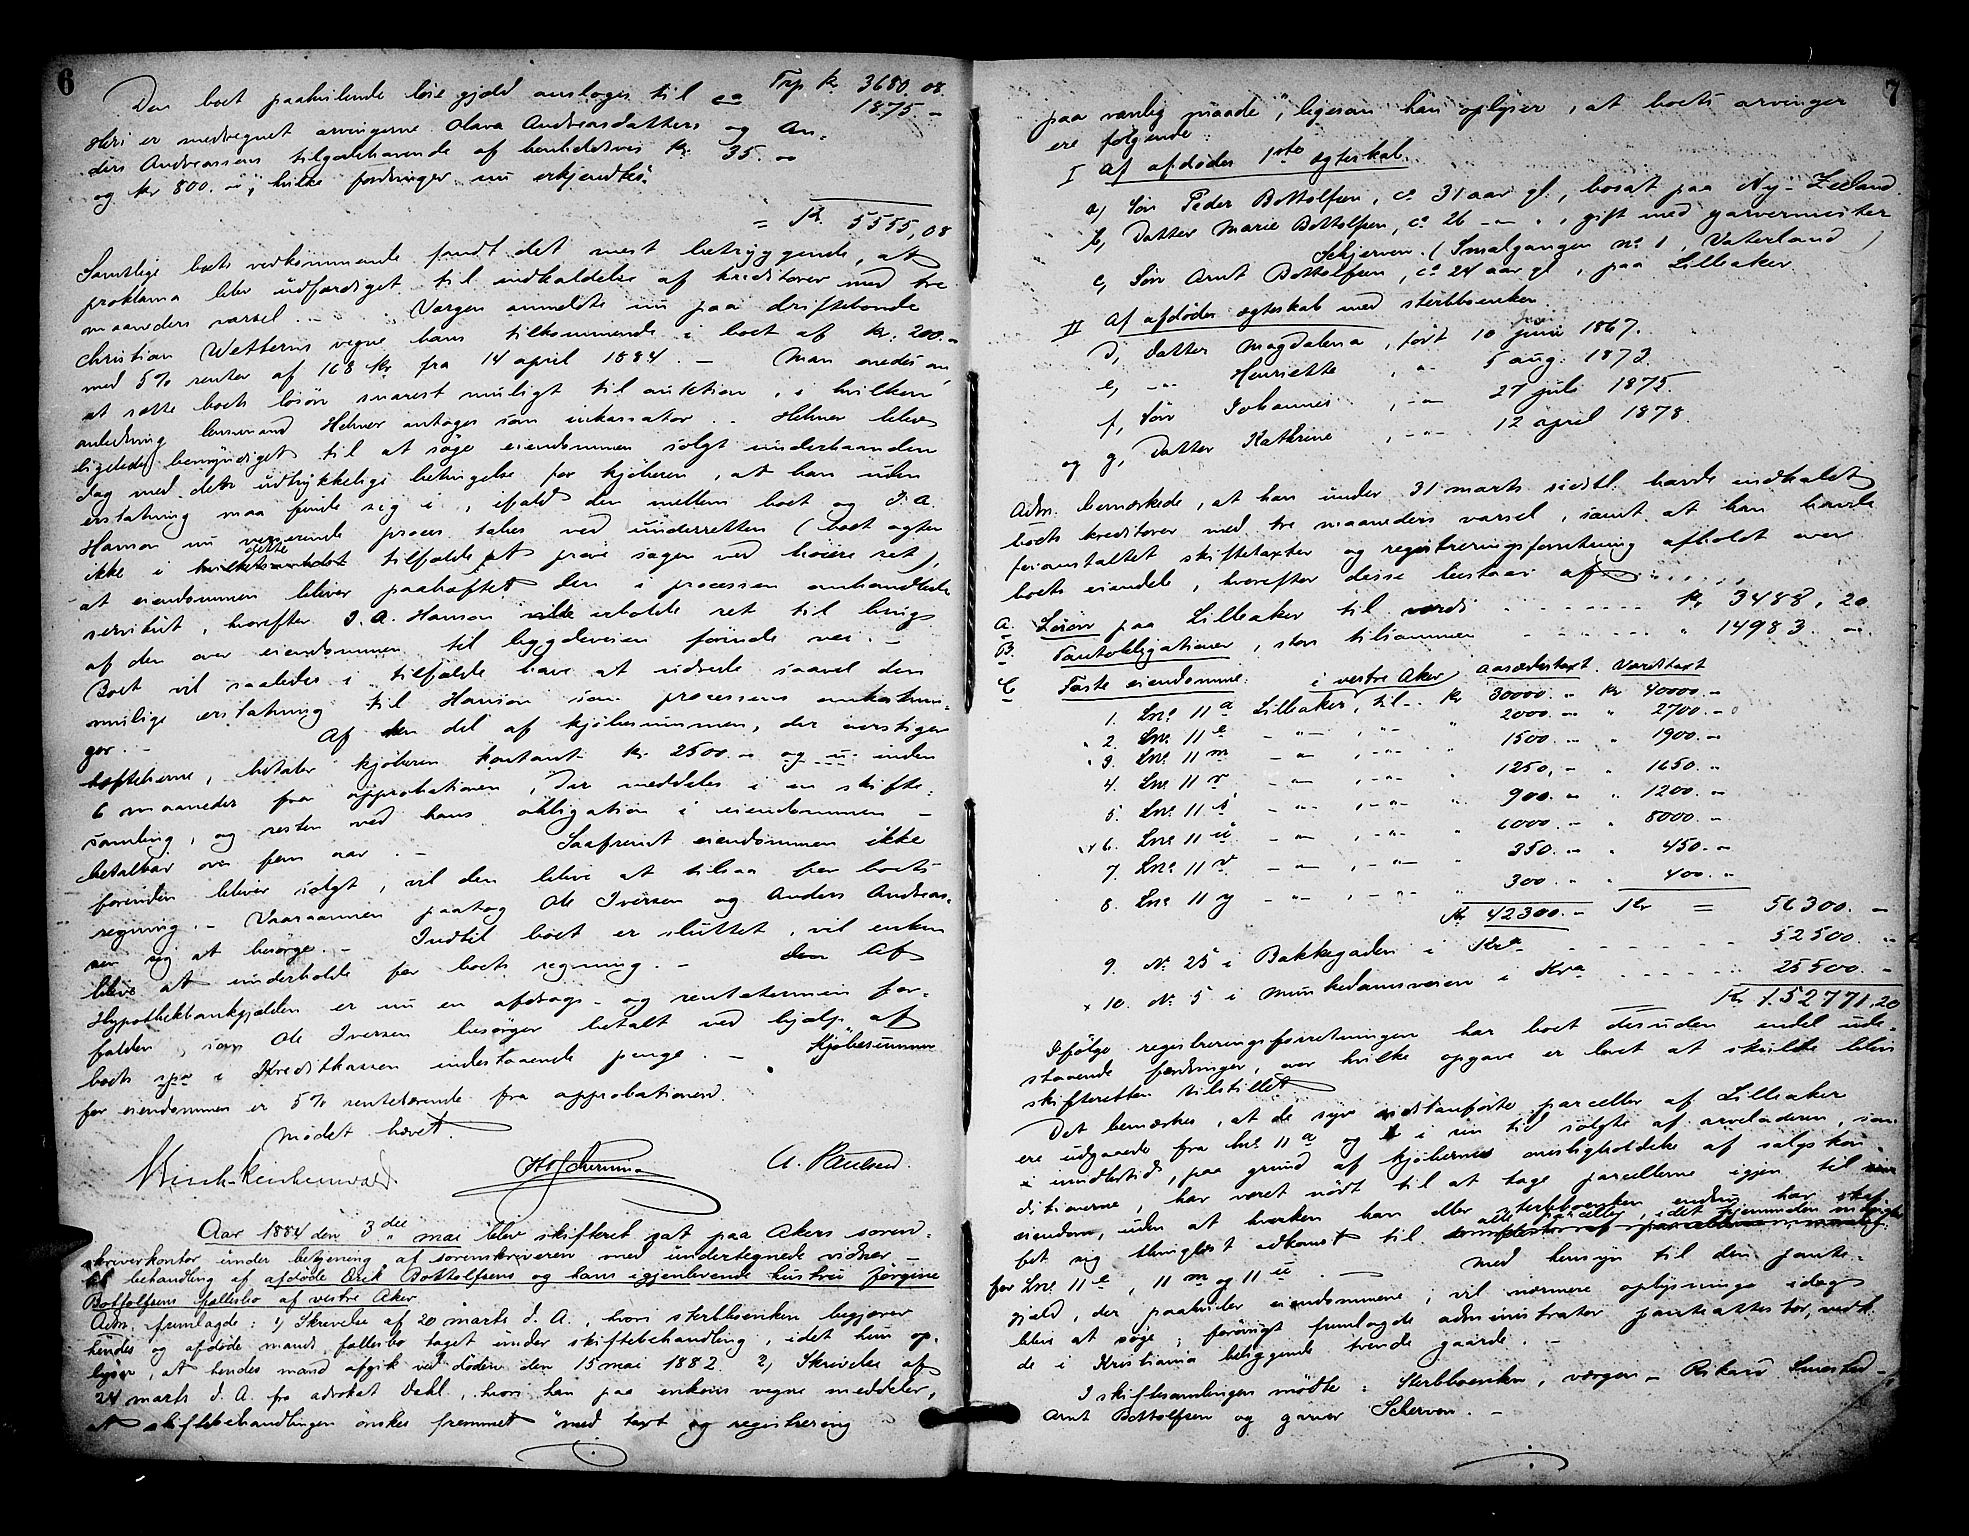 6
Trp kr 3680.08
Den boet paahvilende løse gjæld ansloges til ca 1875 –
Heri er medregnet arvingerne Olava Andreasdatters og An=
ders Andreassens tilgodehavende af henholdsvis kr. 35.00
og kr 800.00, hvilke fordringer nu erkjendtes.
= Kr. 5555,08
Samtlige boets vedkommende fandt det mest betryggende, at
proklama blev udfærdiget til indkaldelse af kreditorer med tre
maaneders varsel. – Værgen anmeldte nu paa driftebonde
Christian Wetterns vegne hans tilkommende i boet af kr. 200.–
med 5% renter af 168 kr fra 14 april 1884. – Man enedes om
at sætte boets løsøre snarest muligt til auktion, i hvilken
anledning lensmand Helmer antoges som inkassator. – Helmer blev
ligeledes bemyndiget til at søge eiendommen solgt underhaanden
dog med den udtrykkelige betingelse for kjøberen, at han uden
erstatning maa finde sig i, ifald den mellem boet og I. A.
Hanson nu verserende proces tabes ved underretten (boet agter
ikke i dette tilfælde at prøve sagen ved høiere ret),
at eiendommen bliver paaheftet den i processen omhandlede
servitut, hvorefter I. A. Hanson vilde erholde ret til brug
af den over eiendommen til bygdeveien førende vei. –
Boet vil saaledes i tilfælde have at udrede saavel den
mulige erstatning til Hanson som processens omkostnin=
ger. – Af den del af kjøbesummen, der overstiger
heftelserne, betaler kjøberen kontant kr. 2500.00 og inden
6 maaneder fra approbationen, der meddeles i en skifte=
samling, og resten ved hans obligation i eiendommen –
betalbar over fem aar. – Saafremt eiendommen ikke
forinden bliver solgt, vil den blive at tilsaa for boets
regning. – Vaaraannen paatog Ole Iversen og Anders Andreas=
sen sig at besørge. – Indtil boet er sluttet, vil enken
blive at underholde for boets regning. – Af
Hypothekbankgjælden er nu en afdrags- og rentetermin for=
falden, som Ole Iversen besørger betalt ved hjælp af
boets i Kreditkassen indestaaende penge. – Kjøbesummen
for eiendommen er 5% rentebærende fra approbationen.
Mødet hævet.
A. Paulsen.
Aar 1884 den 3die mai blev skifteret sat paa Akers soren=
skriverkontor under betjening af sorenskriveren med undertegnede vidner –
til behandling af afdøde Erik Bottolfsens og hans igjenlevende hustru Jørgine
Bottolfsens fællesbo af vestre Aker.
Adm. fremlagde: 1) Skrivelse af 20 marts d. A., hvori sterbboenken begjærer
hendes og afdøde mands fællesbo taget under skiftebehandling, idet hun op=
lyser, at hendes mand afgik ved døden den 15 mai 1882. 2) Skrivelse af
24 marts d. A. fra advokat Dahl, hvori han paa enkens vegne meddeler,
at skiftebehandlingen ønskes fremmet "med taxt og registrering
7
paa vanlig maade", ligesom han oplyser, at boets arvinger
ere følgende:
I Af afdødes 1ste ægteskab.
a, Søn Peder Bottolfsen, ca 31 aar gl., bosat paa Ny-Zeeland
b, Datter Marie Bottolfsen, ca 26 –"– ", gift med garvermester
Schjerven. (Smalgangen no 1, Vaterland)
c, Søn Arnt Bottolfsen, ca 24 aar gl, paa Lilleaker
II Af afdødes ægteskab med sterbboenken
d, Datter Magdalena, født 10 juni 1867.
e, –"– Henriette, –"– 5 aug. 1872.
f, Søn Johannes, –"– 27 juli 1875.
og g, Datter Kathrine, –"– 12 april 1878.
Adm. bemærkede, at han under 31 marts sidstl. havde indkaldt
boets kreditorer med tre maaneders varsel, samt at han havde
foranstaltet skiftetaxter og registreringsforretning afholdt over
boets eiendele, hvorefter disse bestaar af:
A. Løsøre paa Lilleaker til værdi – – – – – kr. 3488,20
B. Pantobligationer, stor tilsammen – – – – – " 14983.00
C Faste eiendomme: i vestre Aker aasædestaxt. Værditaxt
1. Lno 11 a Lilleaker, til – kr 30000.00 kr 40000.00
2. Lno 11 e –"– , –"– " 2000.00 " 2700.00
3. Lno 11 m –"– , –"– " 1500.00 " 1900.00
4. Lno 11 r –"– , –"– " 1250.– " 1650.00
5. Lno 11 s –"– , –"– " 900.00 " 1200.00
6. Lno 11 u –"– , –"– " 6000.00 " 8000.00
7. Lno 11 v –"– , –"– " 350.00 " 450.00
8. Lno 11 y –"– , –"– " 300.00 " 400.00
Kr 42300.– Kr = 56300.–
9. No 25 i Bakkegaden i Kra – – – – – 52500.–
10. No 5 i Munkedamsveien i Kra – – – – – 25500.–
Kr 152771.20
Ifølge registreringsforretningen har boet desuden endel ude=
staaende fordringer, over hvilke opgave er lovet at skulle blive
skifteretten tilstillet.
Det bemærkes, at de syv sidstanførte parceller af Lilleaker
ere udgaaede fra lno 11 a og i sin tid solgte af arveladeren, som
imidlertid, paa grund af kjøbernes misligholdelse af salgskon=
ditionerne, har været nødt til at tage parcellerne igjen til
eiendom, uden at hverken han eller sterbboenken endnu har skaf=
fet sig thinglæst adkomst til alle parceller, idet hjemmelen mangler
for Lno 11 e, 11 m og 11 u. – Med hensyn til den pante=
gjæld, der paahviler eiendommene, vil nærmere oplysninger idag
blive at søge; forøvrigt fremlagde administrator pantattester, vedk.
de i Kristiania beliggende tvende gaarde. –
I skiftesamlingen mødte: Sterbboenken, værgen – Rikard Smestad –
Arnt Bottolfsen og garver Scherven. –